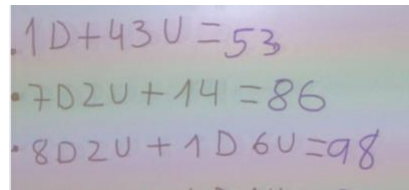 .1D+43U=53
•7D2U+14=86
•8D2U+1D6U=98